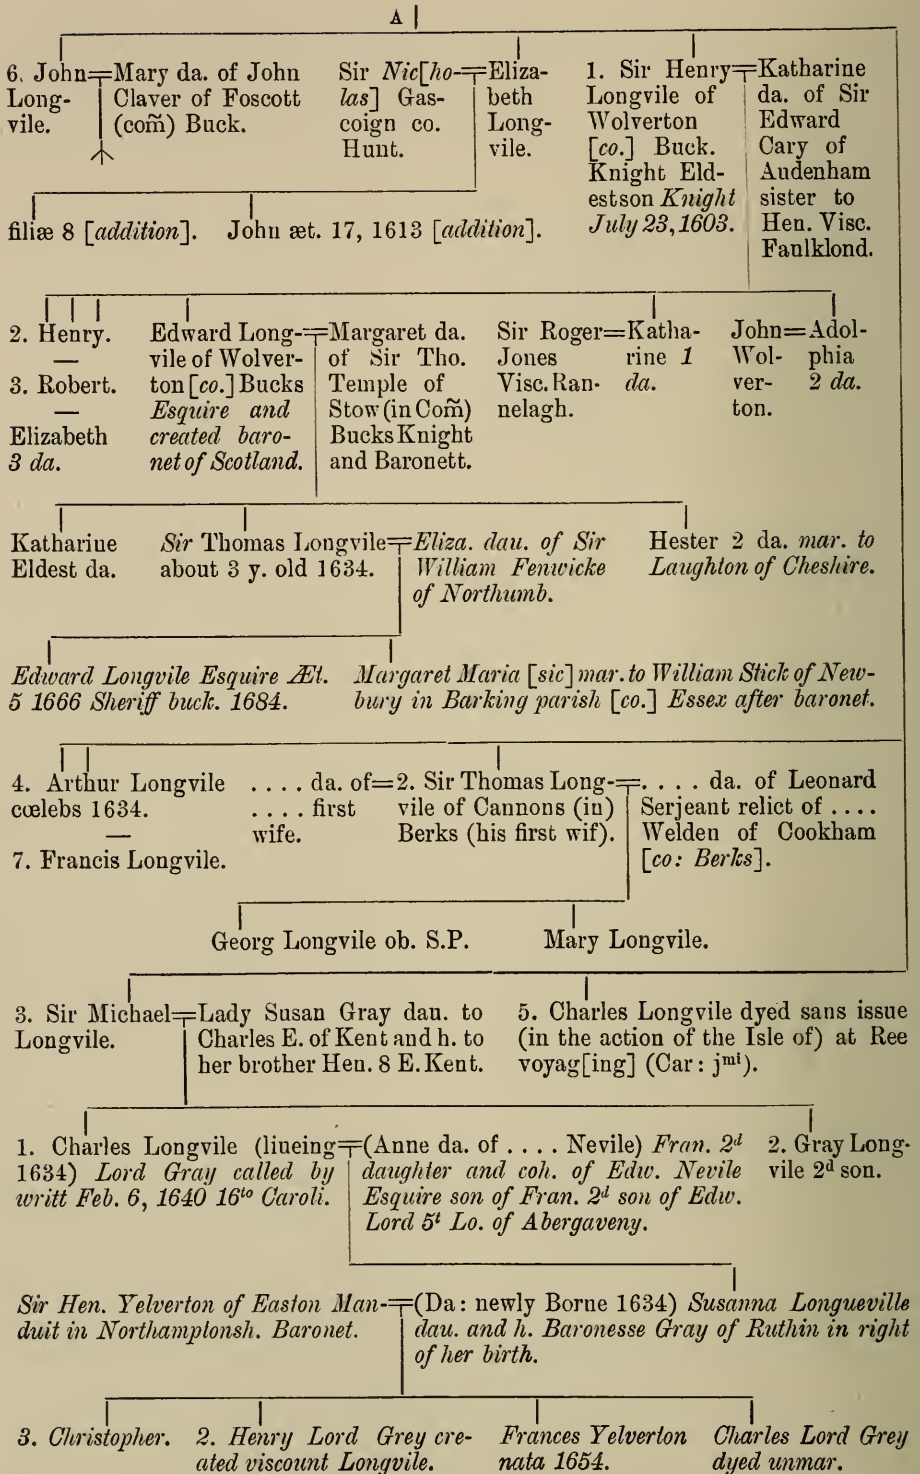 A
6. John
Long-
vile.
Mary da. of John
Claver of Foscott
(com̃) Buck.
Sir Nic[ho-
las] Gas-
coign co.
Hunt.
Eliza-
beth
Long-
vile.
1. Sir Henry
Longvile of
Wolverton
[co.] Buck.
Knight Eld-
estson Knight
July 23, 1603.
Katharine
da. of Sir
Edward
Cary of
Audenham
sister to
Hen. Visc.
Faulklond.
filiæ 8 [addition].
John æt. 17, 1613 [addition].
2. Henry.
—
3. Robert.
—
Elizabeth
3 da.
Edward Long-
vile of Wolver-
ton [co.] Bucks
Esquire and
created baro-
net of Scotland.
Margaret da.
of Sir Tho.
Temple of
Stow (in Com̃)
Bucks Knight
and Baronett.
Sir Roger
Jones
Visc. Ran-
nelagh.
Katha-
rine 1
da.
John
Wol-
ver-
ton.
Adol-
phia
2 da.
Katharine
Eldest da.
Sir Thomas Longvile
about 3 y. old 1634.
Eliza. dau. of Sir
William Fenwicke
of Northumb.
Hester 2 da. mar. to
Laughton of Cheshire.
Edward Longvile Esquire Æt.
5 1666 Sheriff buck. 1684.
Margaret Maria [sic] mar. to William Stick of New-
bury in Barking parish [co.] Essex after baronet.
4. Arthur Longvile
cœlebs 1634.
—
7. Francis Longvile.
. . . . da. of
. . . . first
wife.
2. Sir Thomas Long-
vile of Cannons (in)
Berks (his first wif).
. . . . da. of Leonard
Serjeant relict of . . . .
Welden of Cookham
[co: Berks].
Georg Longvile ob. S.P.
Mary Longvile.
3. Sir Michael
Longvile.
Lady Susan Gray dau. to
Charles E. of Kent and h. to
her brother Hen. 8 E. Kent.
5. Charles Longvile dyed sans issue
(in the action of the Isle of) at Ree
voyag[ing] (Car: jmi).
1. Charles Longvile (liueing
1634) Lord Gray called by
writt Feb. 6, 1640 16to Caroli.
(Anne da. of . . . . Nevile) Fran. 2d
daughter and coh. of Edw. Nevile
Esquire son of Fran. 2d son of Edw.
Lord 5t Lo. of Abergaveny.
2. Gray Long-
vile 2d son.
Sir Hen. Yelverton of Easton Man-
duit in Northamptonsh. Baronet.
(Da: newly Borne 1634) Susanna Longueville
dau. and h. Baronesse Gray of Ruthin in right
of her birth.
3. Christopher.
2. Henry Lord Grey cre-
ated viscount Longvile.
Frances Yelverton
nata 1654.
Charles Lord Grey
dyed unmar.